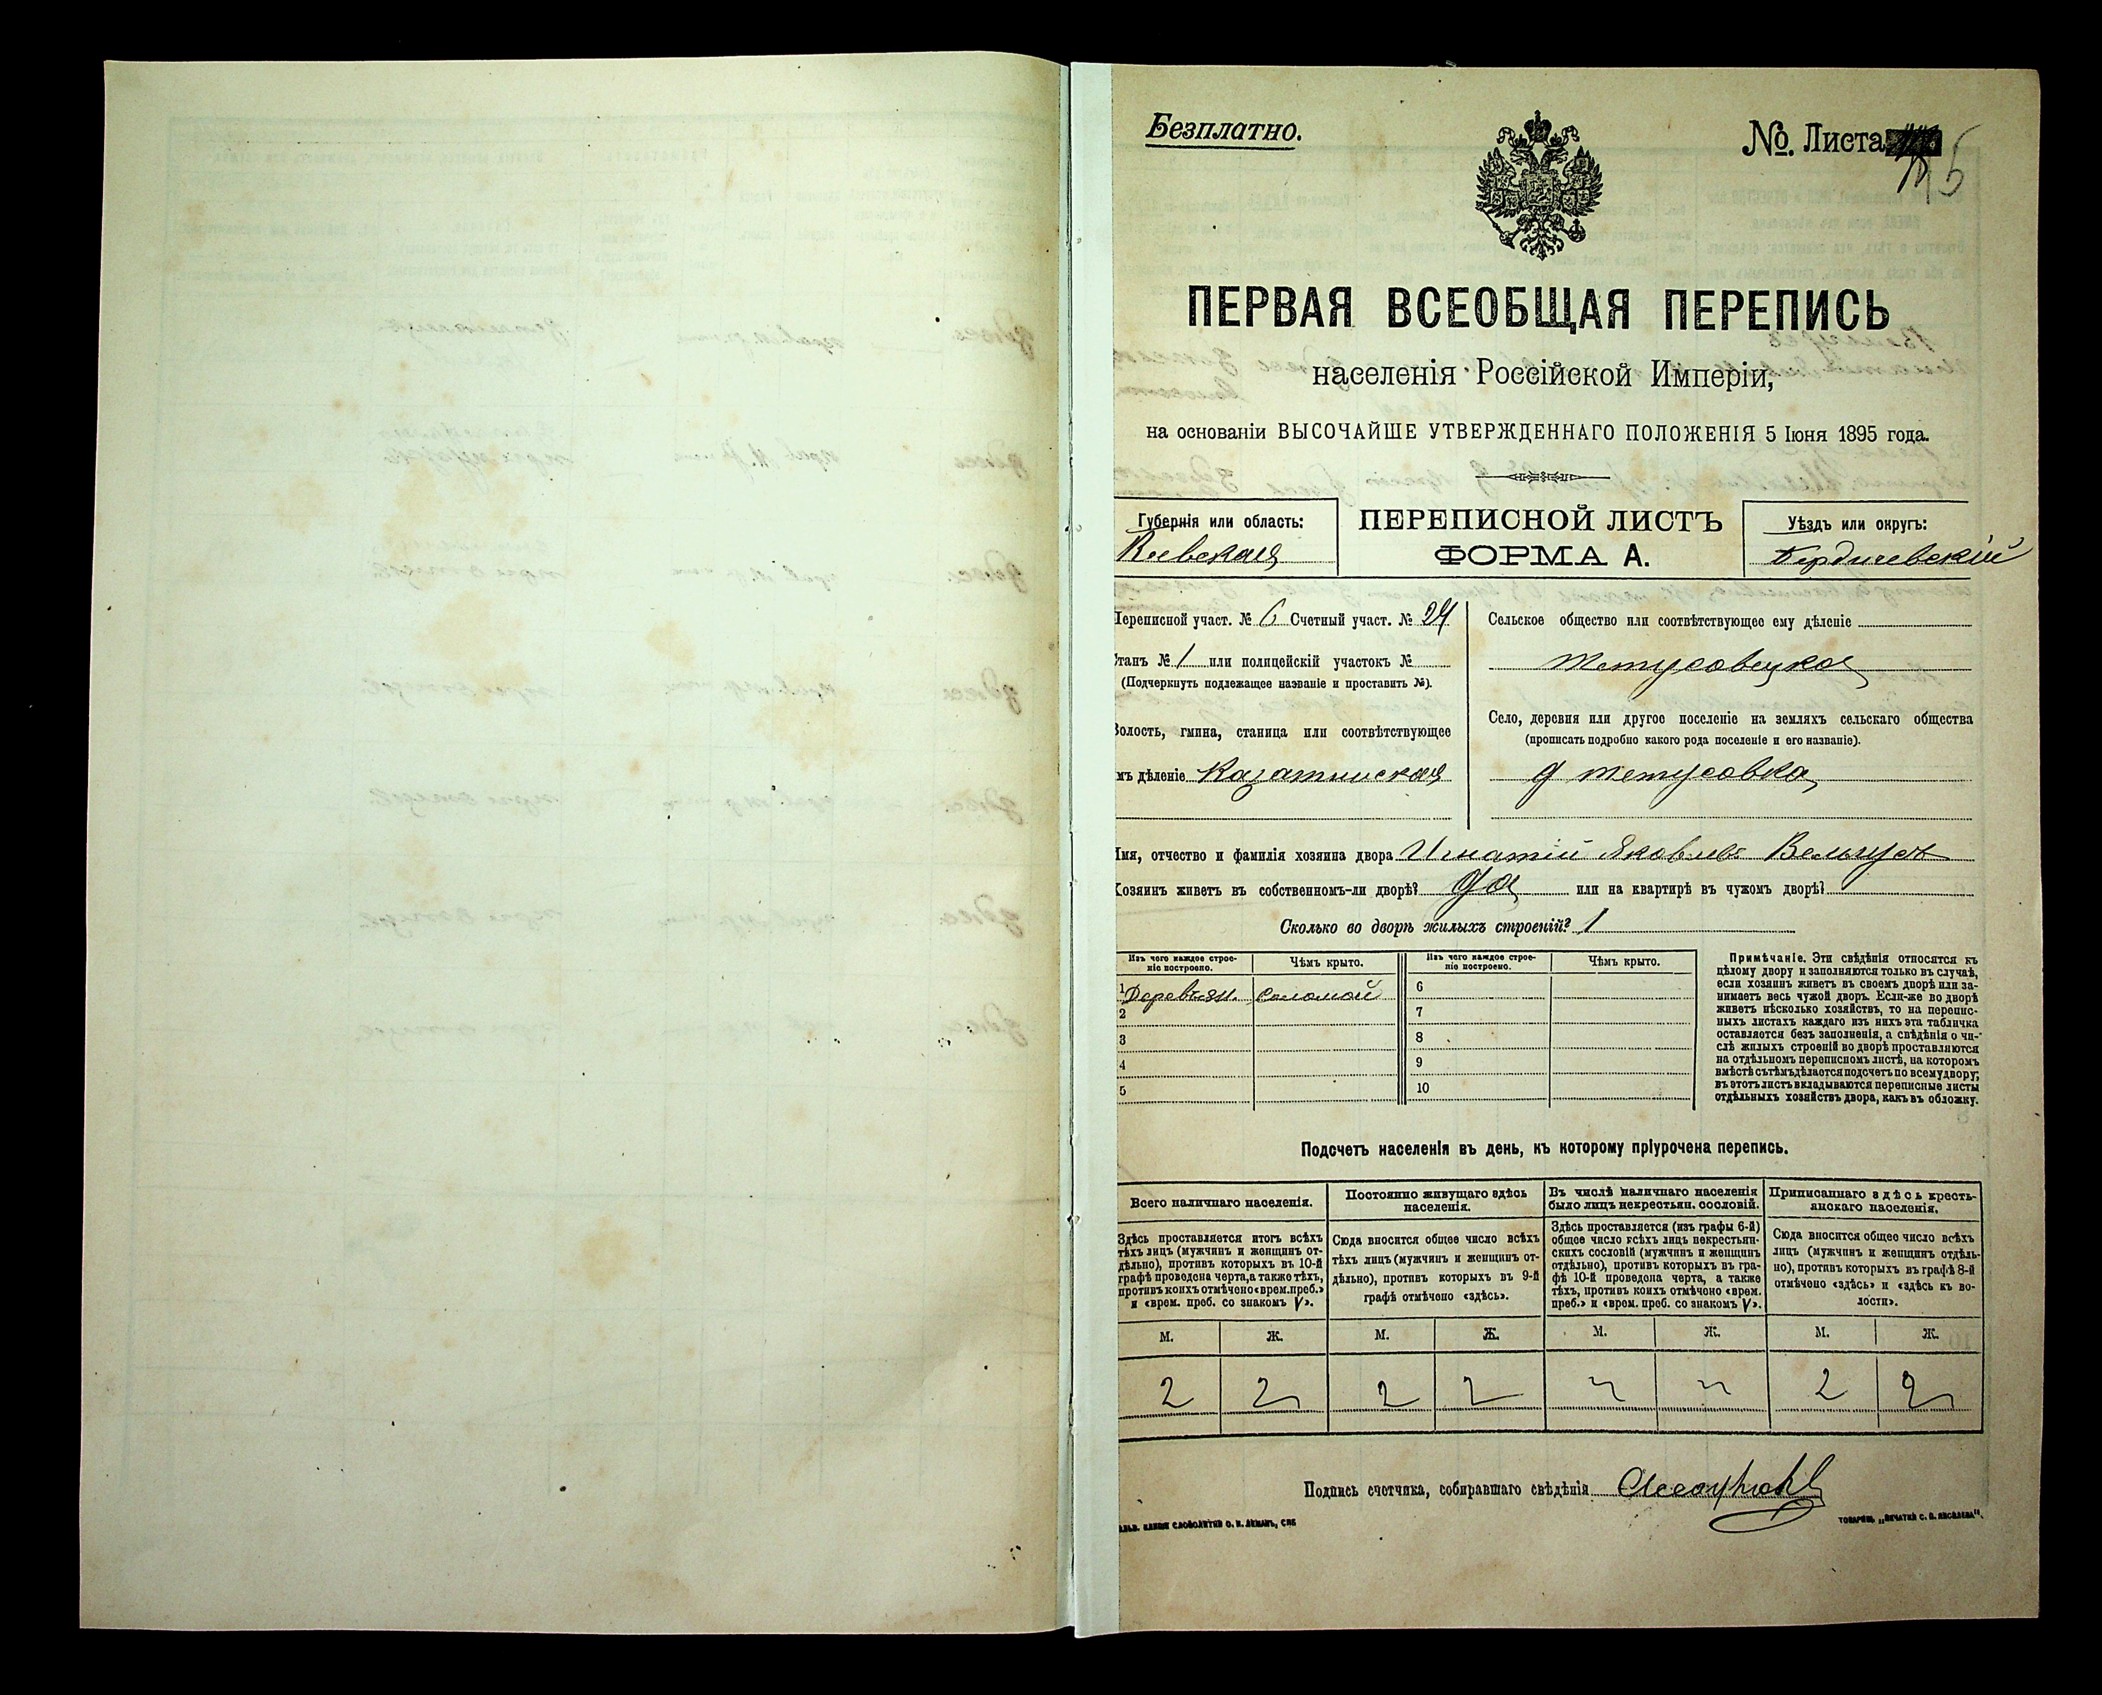 Безплатно.
№. Листа 15
ПЕРВАЯ ВСЕОБЩАЯ ПЕРЕПИСЬ
населенія Россійской Имперіи,
на основаніи ВЫСОЧАЙШЕ УТВЕРЖДЕННАГО ПОЛОЖЕНІЯ 5 Іюня 1895 года.
Губернія или область:
Кіевская
ПЕРЕПИСНОЙ ЛИСТЪ
ФОРМА А.
Уѣздъ или округъ:
Бердичевскій
Переписной участ. № 6 Счетный участ. № 24
Станъ № 1 или полицейскій участокъ №
(Подчеркнуть подлежащее названіе и проставить №).
Волость, гмина, станица или соотвѣтствующее
имъ дѣленіе Казатинская
Сельское общество или соотвѣтствующее ему дѣленіе
Титусовецкое
Село, деревня или другое поселеніе на земляхъ сельскаго общества
(прописать подробно какого рода поселеніе и его названіе).
д Титусовка
Имя, отчество и фамилія хозяина двора Игнатій Яковлевъ
Хозяинъ живетъ въ собственномъ-ли дворѣ? да или на квартирѣ въ чужомъ дворѣ?
Сколько во дворѣ жилыхъ строеній? 1
Изъ чего каждое строе-
ніе построено.
Чѣмъ крыто.
Изъ чего каждое строе-
ніе построено.
Чѣмъ крыто.
1 Деревян. Соломой 6
2 7
3 8
4 9
5 10
Примѣчаніе. Эти свѣдѣнія относятся къ
цѣлому двору и заполняются только въ случаѣ,
если хозяинъ живетъ въ своемъ дворѣ или за-
нимаетъ весь чужой дворъ. Если-же во дворѣ
живетъ нѣсколько хозяйствъ, то на перепис-
ныхъ листахъ каждаго изъ нихъ эта табличка
оставляется безъ заполненія, а свѣдѣнія о чи-
слѣ жилыхъ строеній во дворѣ проставляются
на отдѣльномъ переписномъ листѣ, на которомъ
вмѣстѣ съ тѣмъ дѣлается подсчетъ по всему двору;
въ этотъ листъ вкладываются переписные листы
отдѣльныхъ хозяйствъ двора, какъ въ обложку.
Подсчетъ населенія въ день, къ которому пріурочена перепись.
Всего наличнаго населенія.
Здѣсь проставляется итогъ всѣхъ
тѣхъ лицъ (мужчинъ и женщинъ от-
дѣльно), противъ которыхъ въ 10-й
графѣ проведена черта, а также тѣхъ,
противъ коихъ отмѣчено «врем. преб.»
и «врем. преб. со знакомъ V».
Постоянно живущаго здѣсь
населенія.
Сюда вносится общее число всѣхъ
тѣхъ лицъ (мужчинъ и женщинъ от-
дѣльно), противъ которыхъ въ 9-й
графѣ отмѣчено «здѣсь».
Въ числѣ наличнаго населенія
было лицъ некрестьян. сословій.
Здѣсь проставляется (изъ графы 6-й)
общее число всѣхъ лицъ некрестьян-
скихъ сословій (мужчинъ и женщинъ
отдѣльно), противъ которыхъ въ гра-
фѣ 10-й проведена черта, а также
тѣхъ, противъ коихъ отмѣчено «врем.
преб.» и «врем. преб. со знакомъ V».
Приписаннаго здѣсь кресть-
янскаго населенія.
Сюда вносится общее число всѣхъ
лицъ (мужчинъ и женщинъ отдѣль-
но), противъ которыхъ въ графѣ 8-й
отмѣчено «здѣсь» и «здѣсь въ во-
лости».
М. Ж. М. Ж. М. Ж. М. Ж.
2 2 2 2 " " 2 2
Подпись счетчика, собиравшаго свѣдѣнія